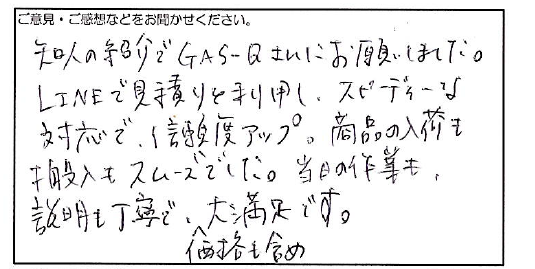 ご意見・ご感想などをお聞かせください。
知人の紹介でGAS-Qさんにお願いしました。
LINEで見積りを利用し、スピーディーな
対応で、信頼度アップ。商品の入荷も
搬入もスムーズでした。当日の作業も、
説明も丁寧で、大満足です。
価格も含め